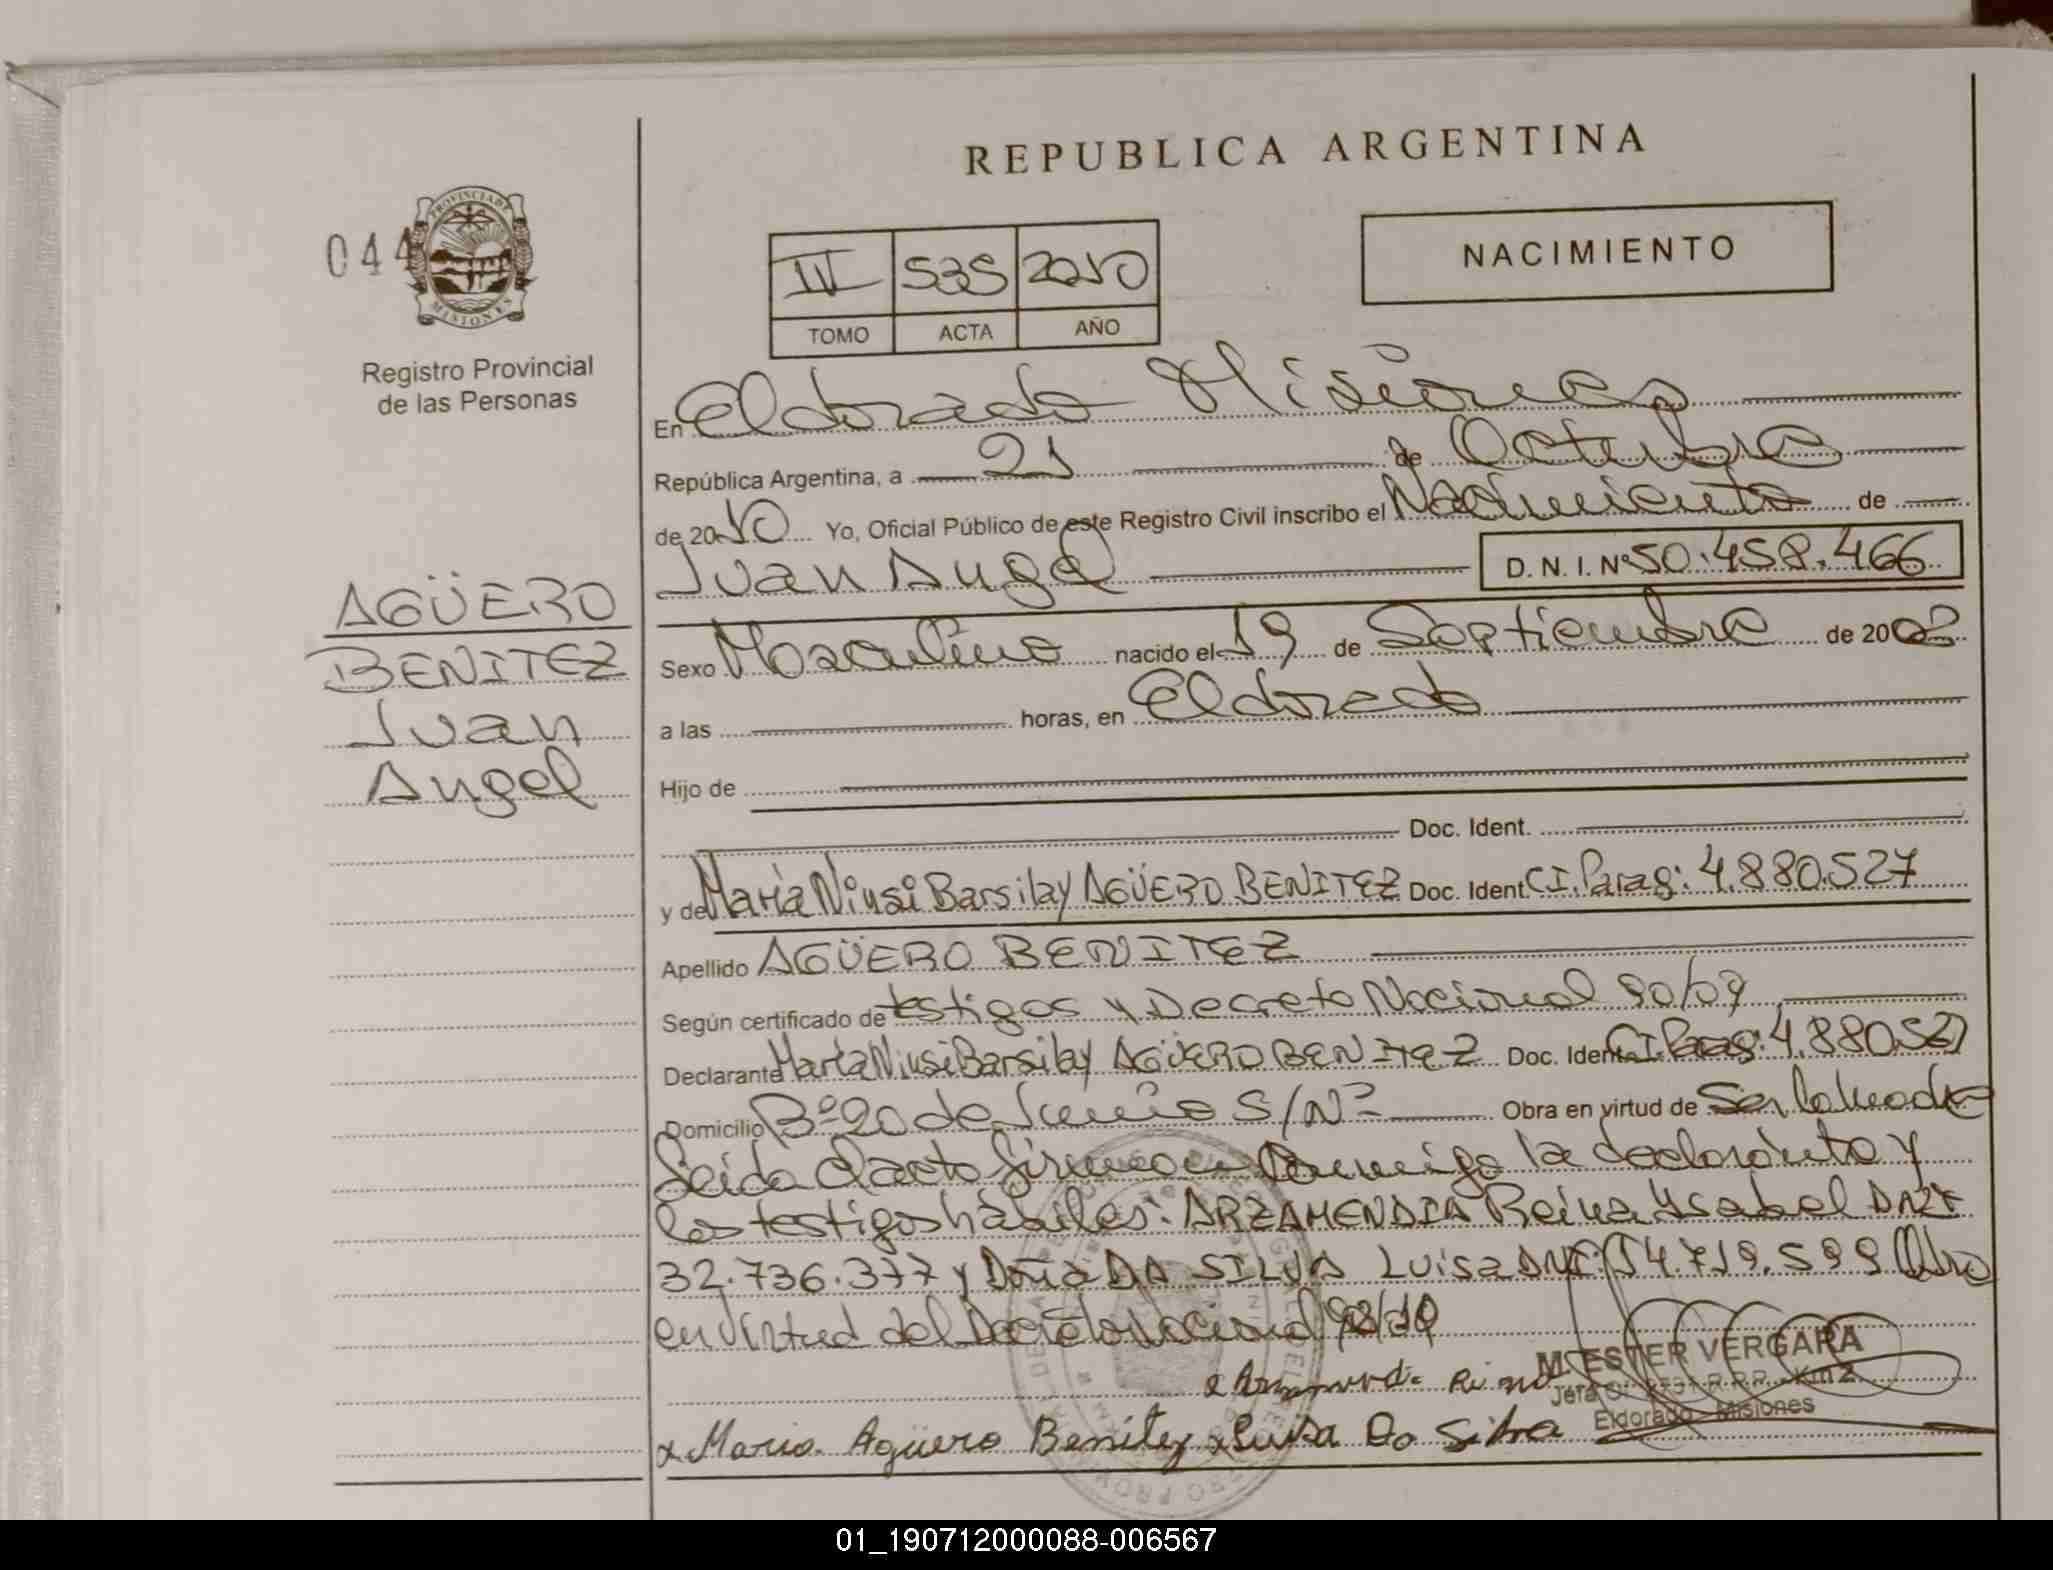 REPUBLICA ARGENTINA
044
PROVINCIA DE
MISIONES
Registro Provincial
de las Personas
IV 535 2010
TOMO ACTA AÑO
NACIMIENTO
En Eldorado Misiones
República Argentina, a 21 de Octubre
de 2010 Yo, Oficial Público de este Registro Civil inscribo el Nacimiento de
Juan Angel D. N. I. Nº 50.458.466
AGÜERO
BENITEZ
Juan
Angel
Sexo Masculino nacido el 19 de Septiembre de 20
a las horas, en Eldorado
Hijo de
Doc. Ident.
y de María Niusi Barsilay AGÜERO BENITEZ Doc. Ident C.I. Parag: 4.880.527
Apellido AGÜERO BENITEZ
Según certificado de testigos y Decreto Nacional 90/09
Declarante María Niusi Barsilay AGÜERO BENITEZ Doc. Ident C.I. Parag: 4.880.527
Domicilio Bº 20 de Junio S/Nº Obra en virtud de Ser la madre
Leída el acto firman conmigo la declarante y
los testigos hábiles: ARZAMENDIA Reina Ysabel DNI
32.736.377 y Doña DA SILVA Luisa DNI: 14.719.599 Obro
en virtud del Decreto Nacional
M. ESTER VERGARA
Jefa R.P.P. Km 2
Eldorado - Misiones
x Maria Agüero Benitez x Luisa Da Silva
01_190712000088-006567